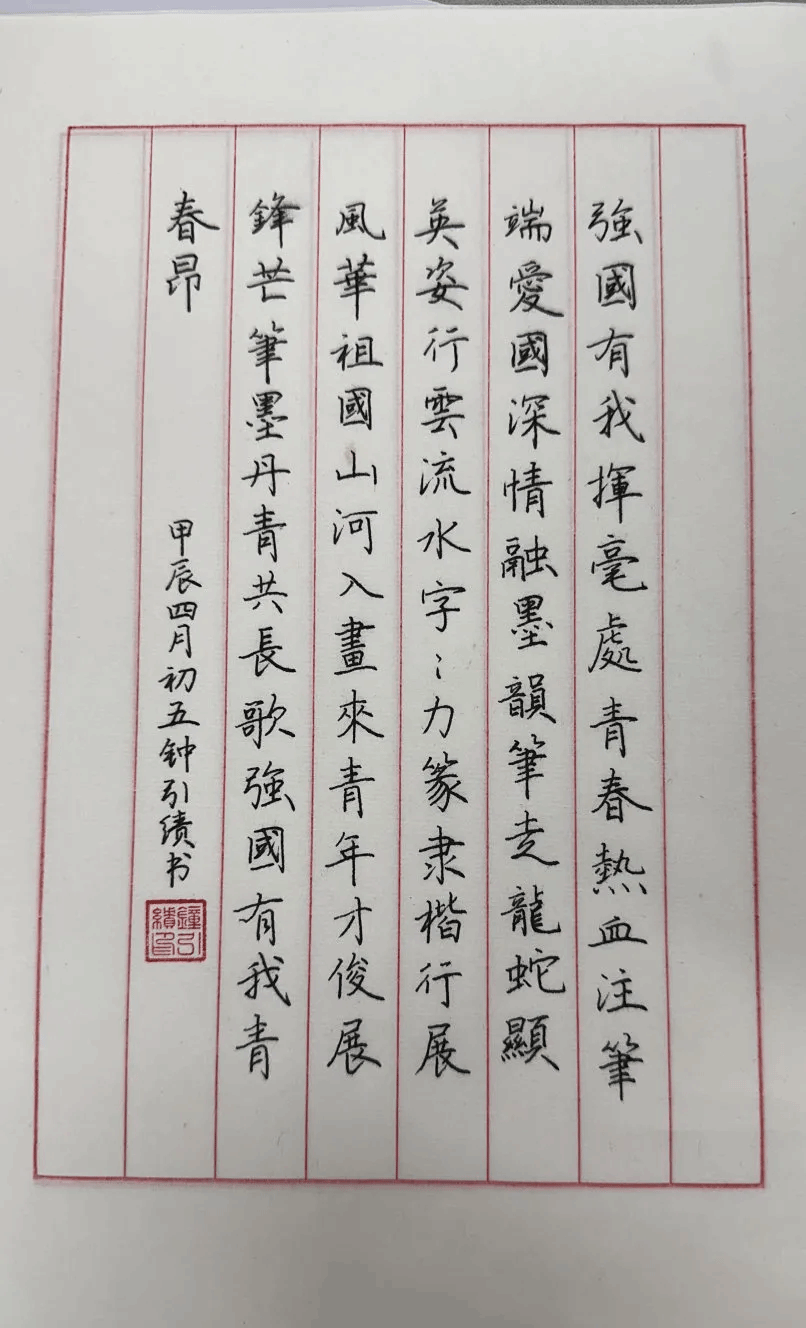 強國有我揮毫處青春熱血注筆
端愛國深情融墨韻筆走龍蛇顯
英姿行雲流水字〻力篆隶楷行展
風華祖國山河入畫來青年才俊展
鋒芒筆墨丹青共長歌強國有我青
春昂
甲辰四月初五钟引绩书
鐘引績印